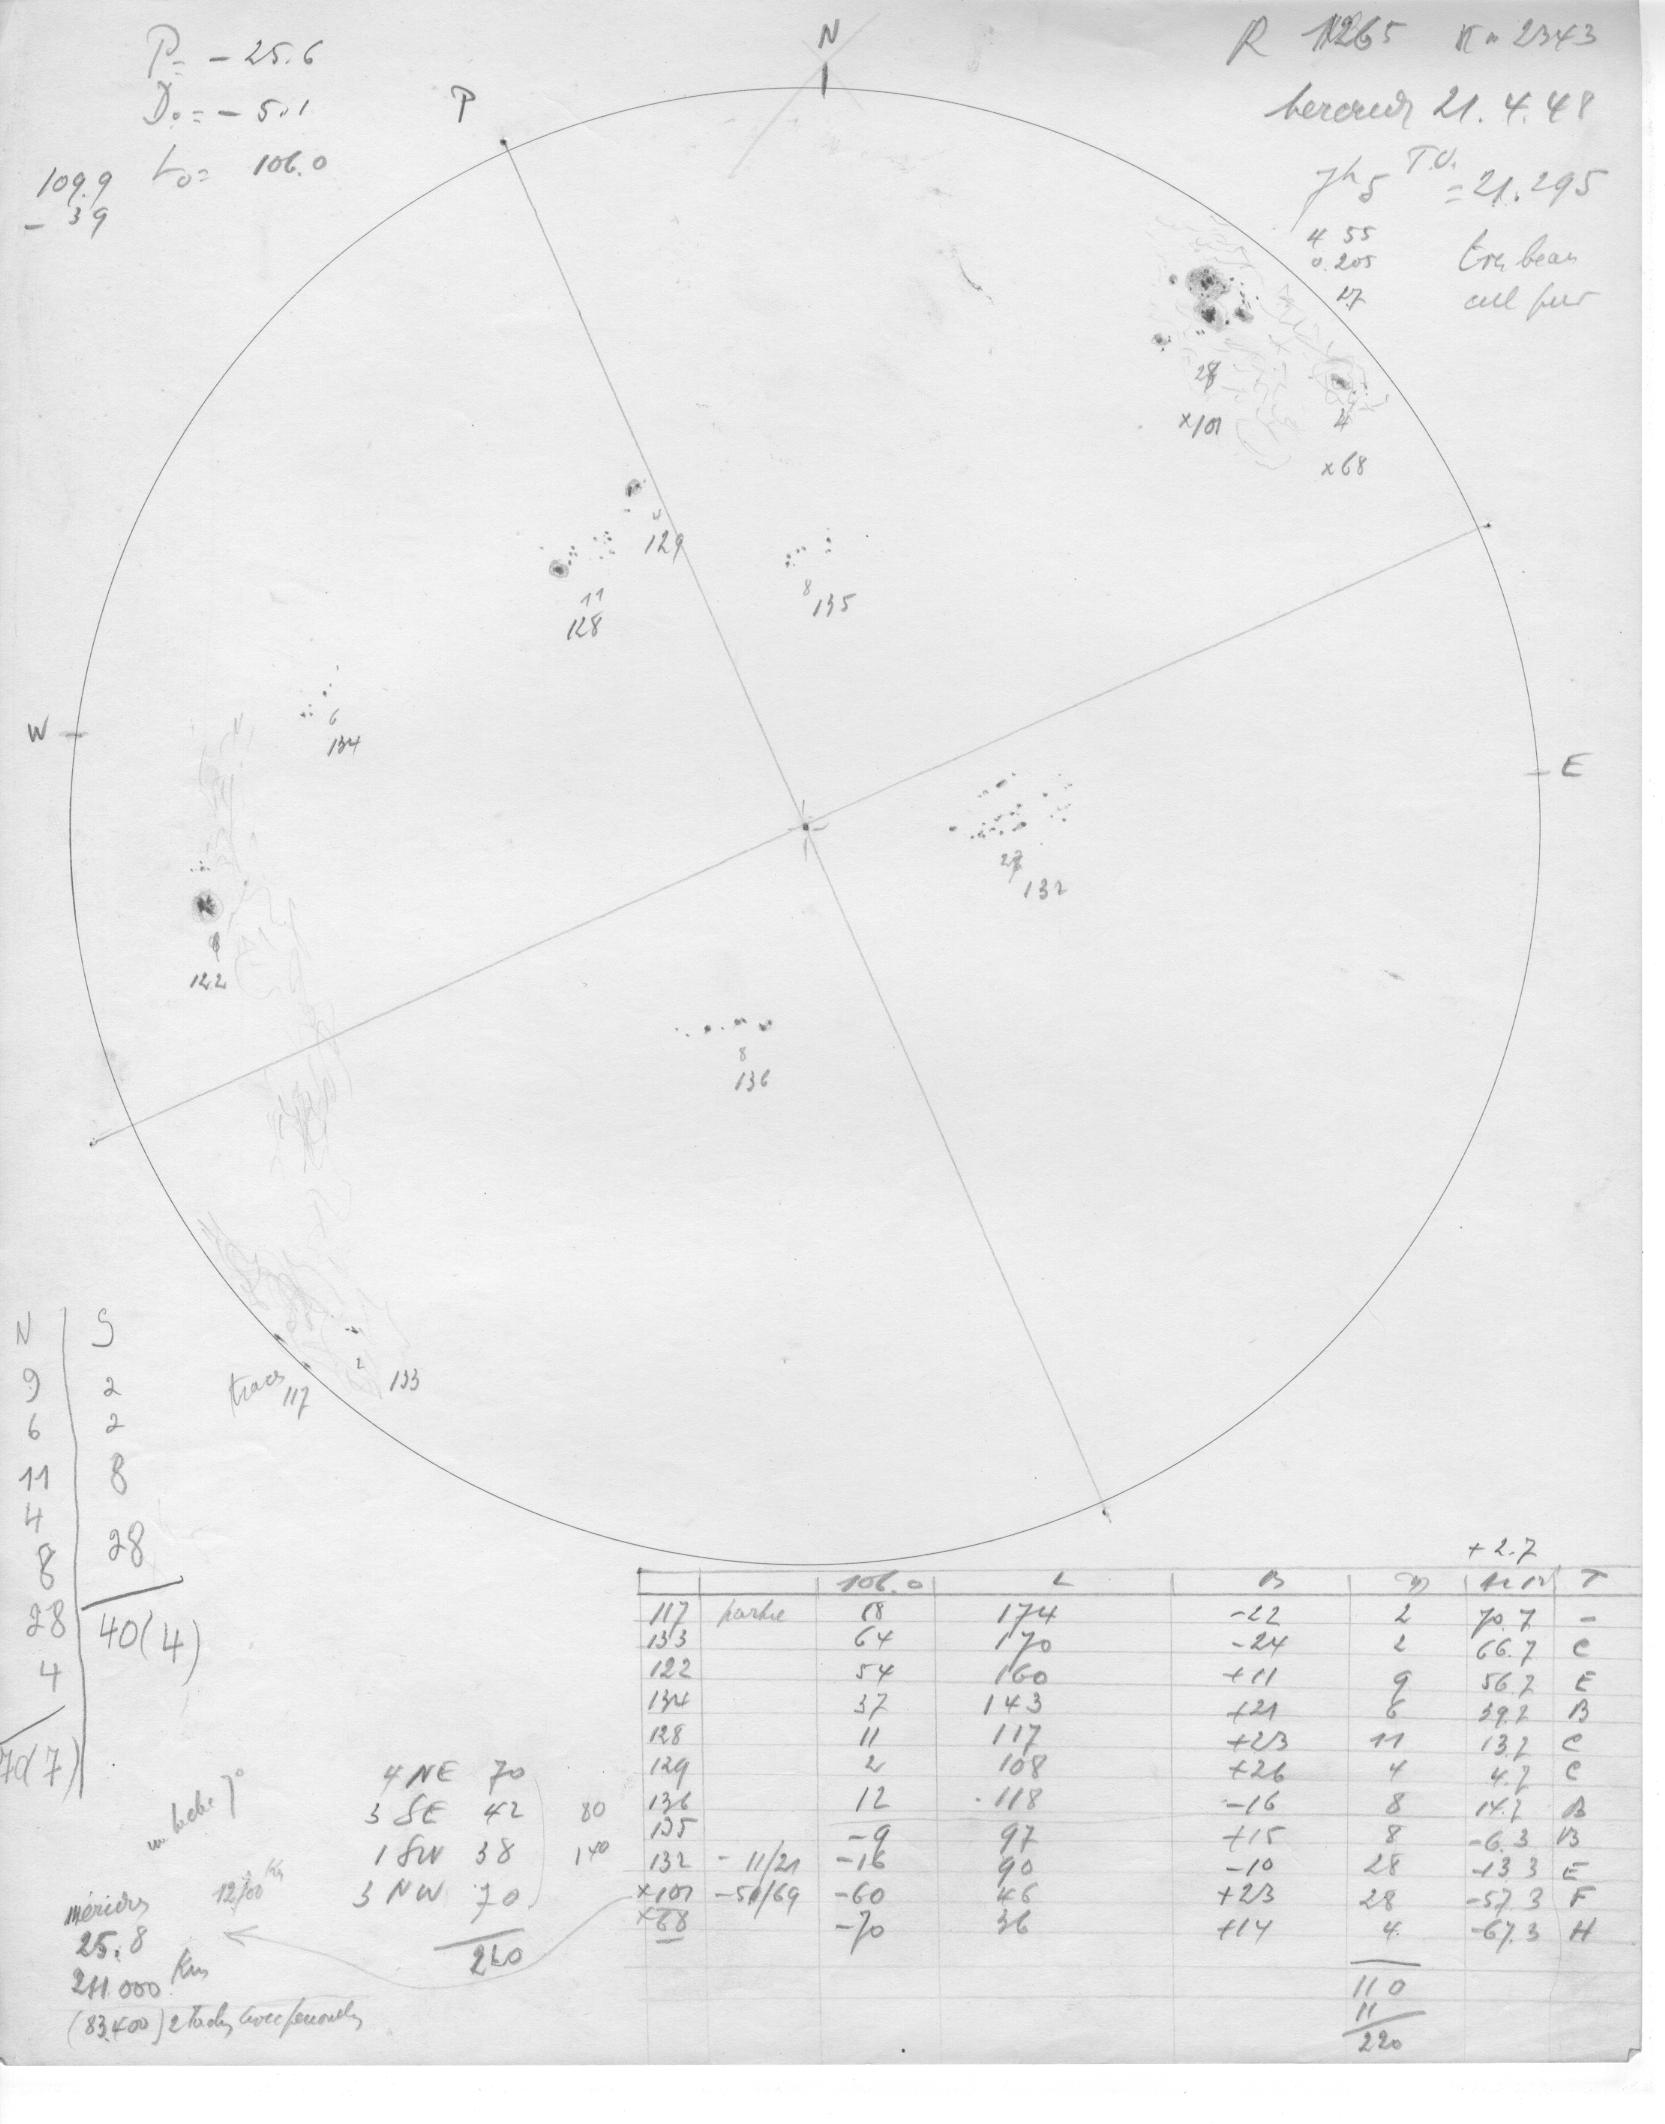 P = -25.6
D₀ = -5.1
L₀ = 106.0
109.9
- 39
N
P
R 1265 n = 2343
21.4.48
7h5 T.U. = 21.295
4 55
0.205
27
28
x101
4
x68
129
11
128
8
135
6
134
W
E
27
132
122
8
136
traces 117
2
133
N | S
9 | 2
6 | 2
11 | 8
4 | 28
8 | 40(4)
28
4
70(7)
+2.7
106.0 L B T
117 18 174 -22 2 70.7 -
133 64 170 -24 2 66.7 C
122 54 160 +11 9 56.7 E
134 37 143 +21 6 39.7 B
128 11 117 +23 11 13.7 C
129 2 108 +26 4 4.7 C
136 12 118 -16 8 14.7 B
135 -9 97 +15 8 -6.3 B
132 -11/21 -16 90 -10 28 -13.3 E
x101 -51/69 -60 46 +23 28 -57.3 F
x68 -70 36 +14 4 -67.3 H
110
11
220
4 NE 70
3 SE 42 80
1 SW 38 140
3 NW 70
220
7°
Km
25.8
211.000 Km
(83.400) 2